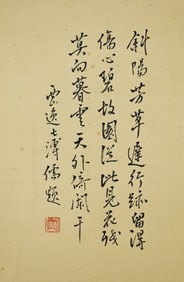 斜陽芳草遲行跡留得
傷心碧故園從此見花殘
莫向暮雲天外倚闌干
雲逸士溥儒題